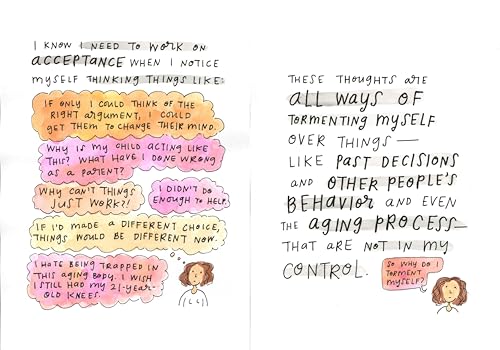 I KNOW I NEED TO WORK ON
ACCEPTANCE WHEN I NOTICE
MYSELF THINKING THINGS LIKE:
IF ONLY I COULD THINK OF THE
RIGHT ARGUMENT, I COULD
GET THEM TO CHANGE THEIR MIND.
WHY IS MY CHILD ACTING LIKE
THIS? WHAT HAVE I DONE WRONG
AS A PARENT?
WHY CAN'T THINGS
JUST WORK?!
I DIDN'T DO
ENOUGH TO HELP.
IF I'D MADE A DIFFERENT CHOICE,
THINGS WOULD BE DIFFERENT NOW.
I HATE BEING TRAPPED IN
THIS AGING BODY. I WISH
I STILL HAD MY 21-YEAR-
OLD KNEES.
THESE THOUGHTS ARE
ALL WAYS OF
TORMENTING MYSELF
OVER THINGS—
LIKE PAST DECISIONS
AND OTHER PEOPLE'S
BEHAVIOR AND EVEN
THE AGING PROCESS—
THAT ARE NOT IN MY
CONTROL.
SO WHY DO I
TORMENT
MYSELF?